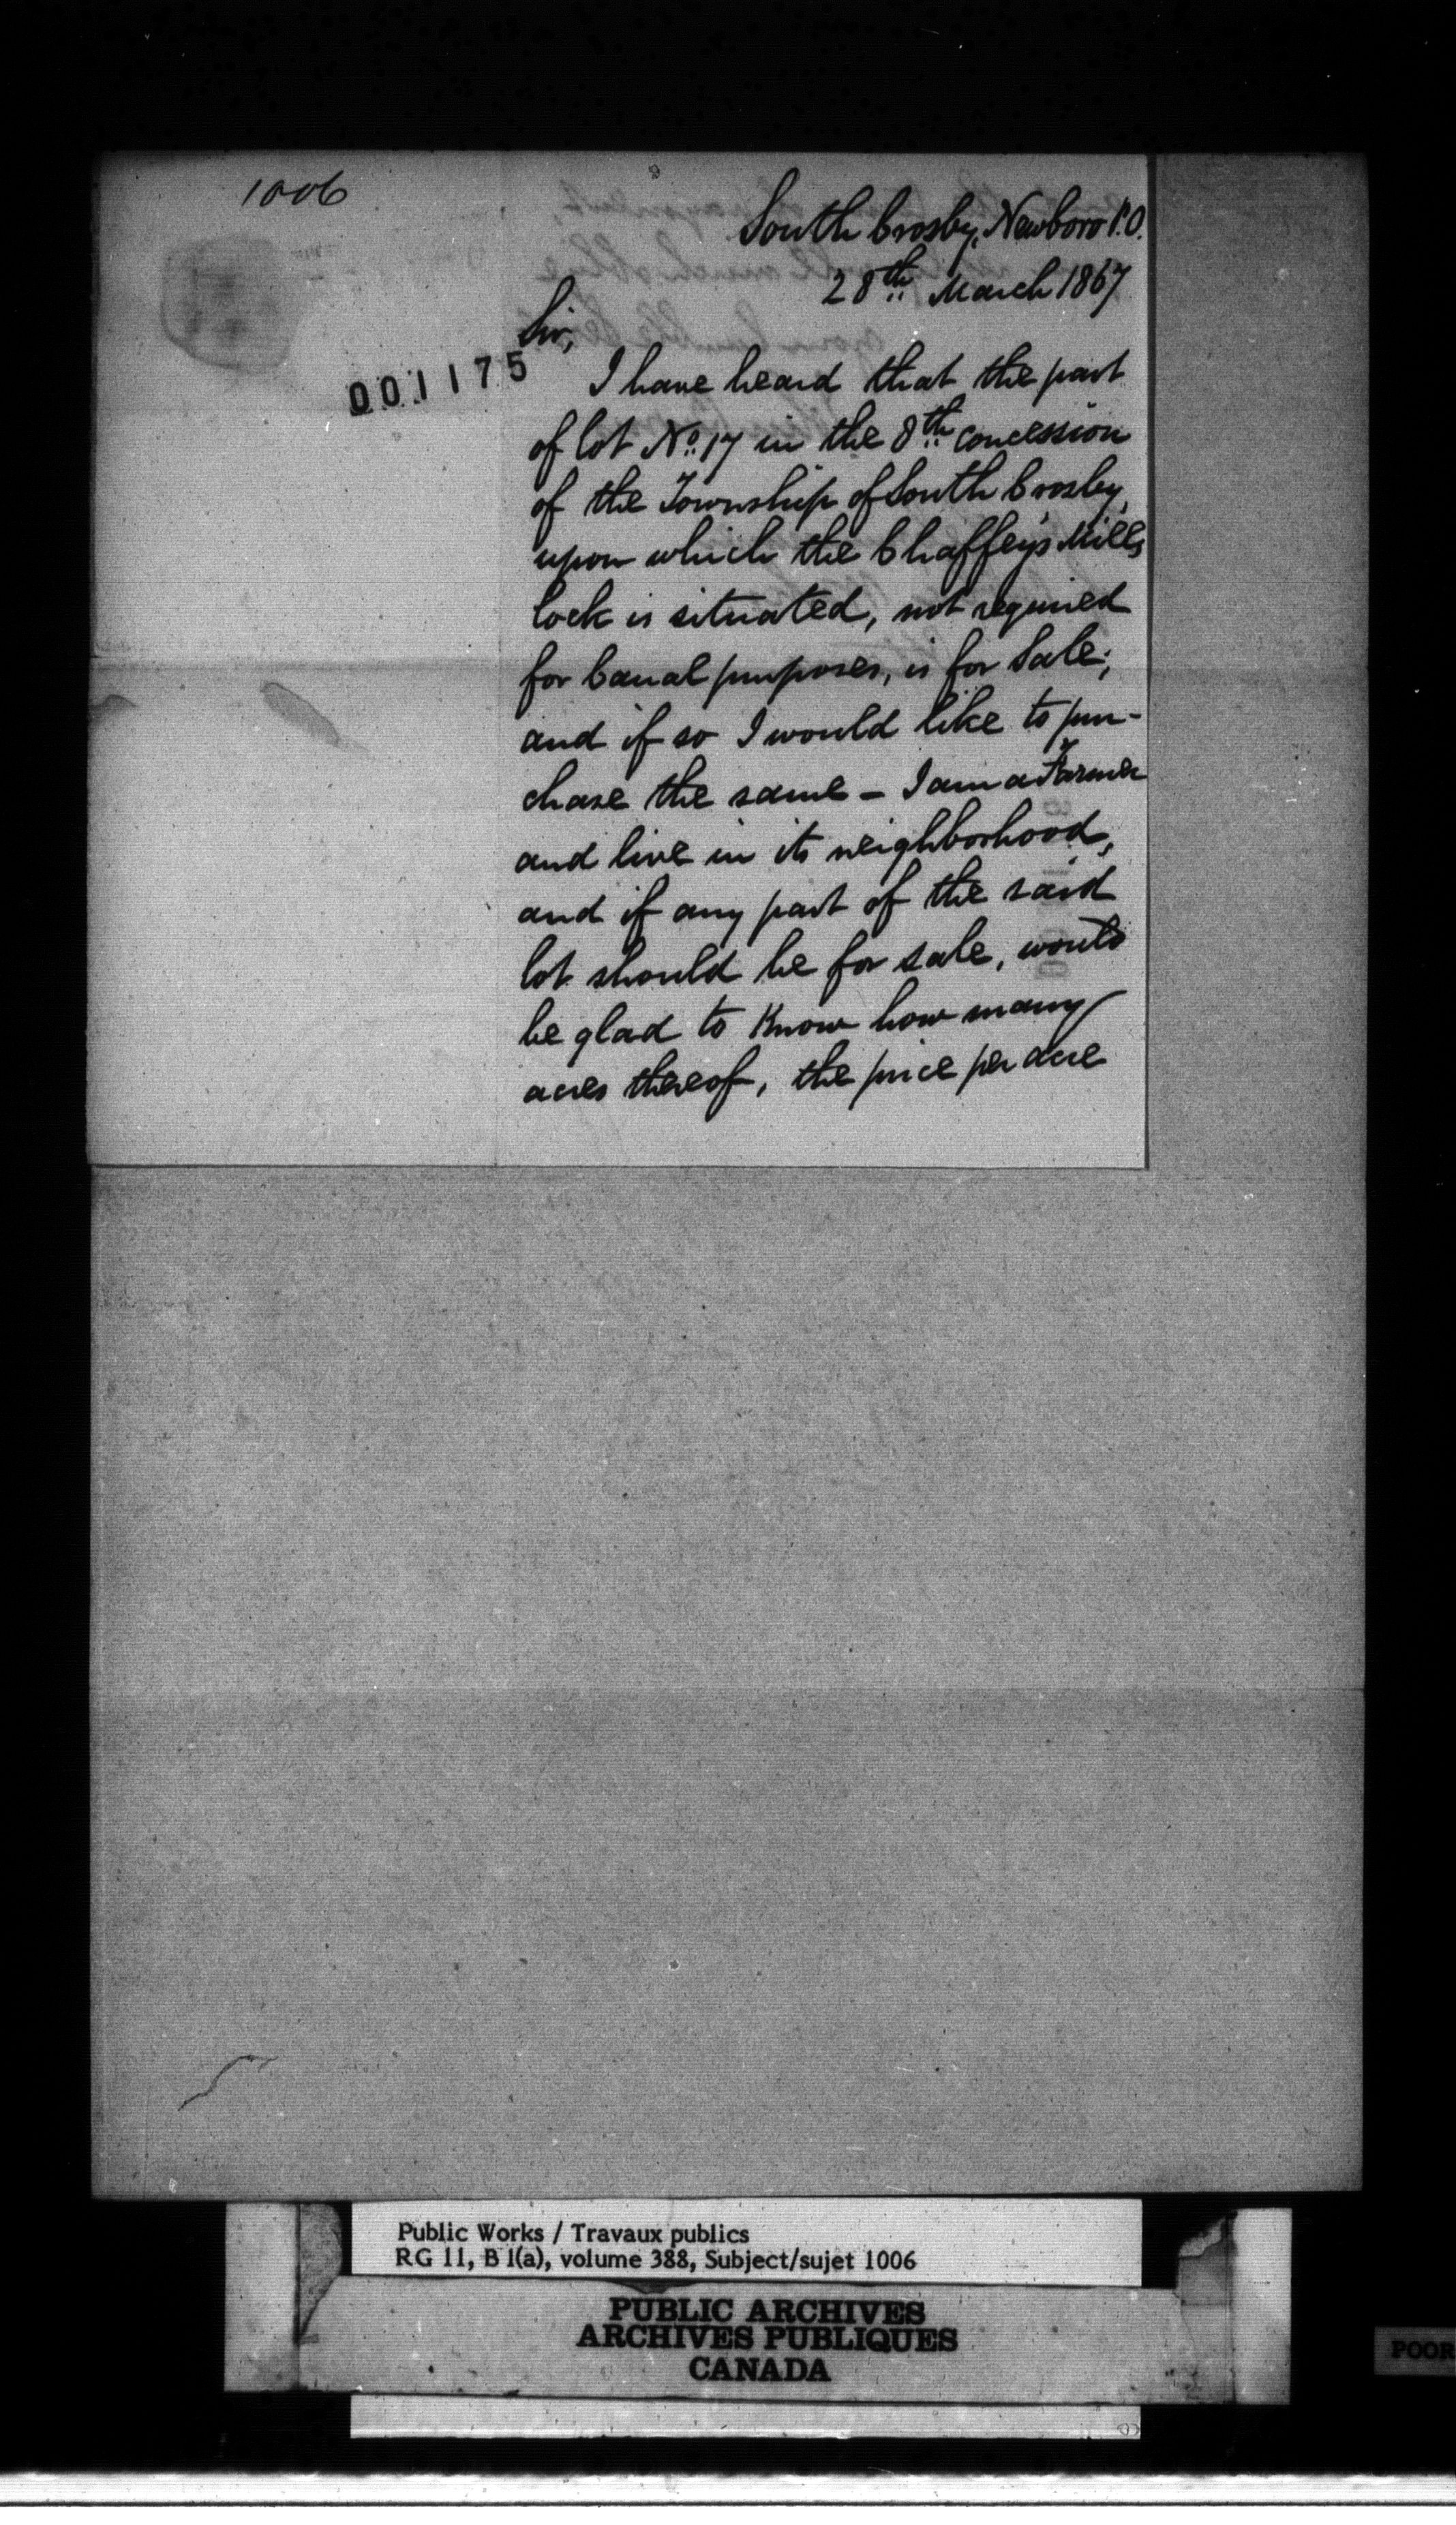 1006
South Crosby, Newboro P.O.
28th March 1867
Sir,
001175
I have heard that the part
of lot No. 17 in the 8th concession
of the Township of South Crosby,
upon which the Chaffey's Mills
lock is situated, not required
for Canal purposes, is for Sale;
and if so I would like to pur-
chase the same - I am a Farmer
and live in its neighborhood,
and if any part of the said
lot should be for sale, would
be glad to Know how many
acres thereof, the price per acre
Public Works / Travaux publics
RG 11, B 1(a), volume 388, Subject/sujet 1006
PUBLIC ARCHIVES
ARCHIVES PUBLIQUES
CANADA
POOR